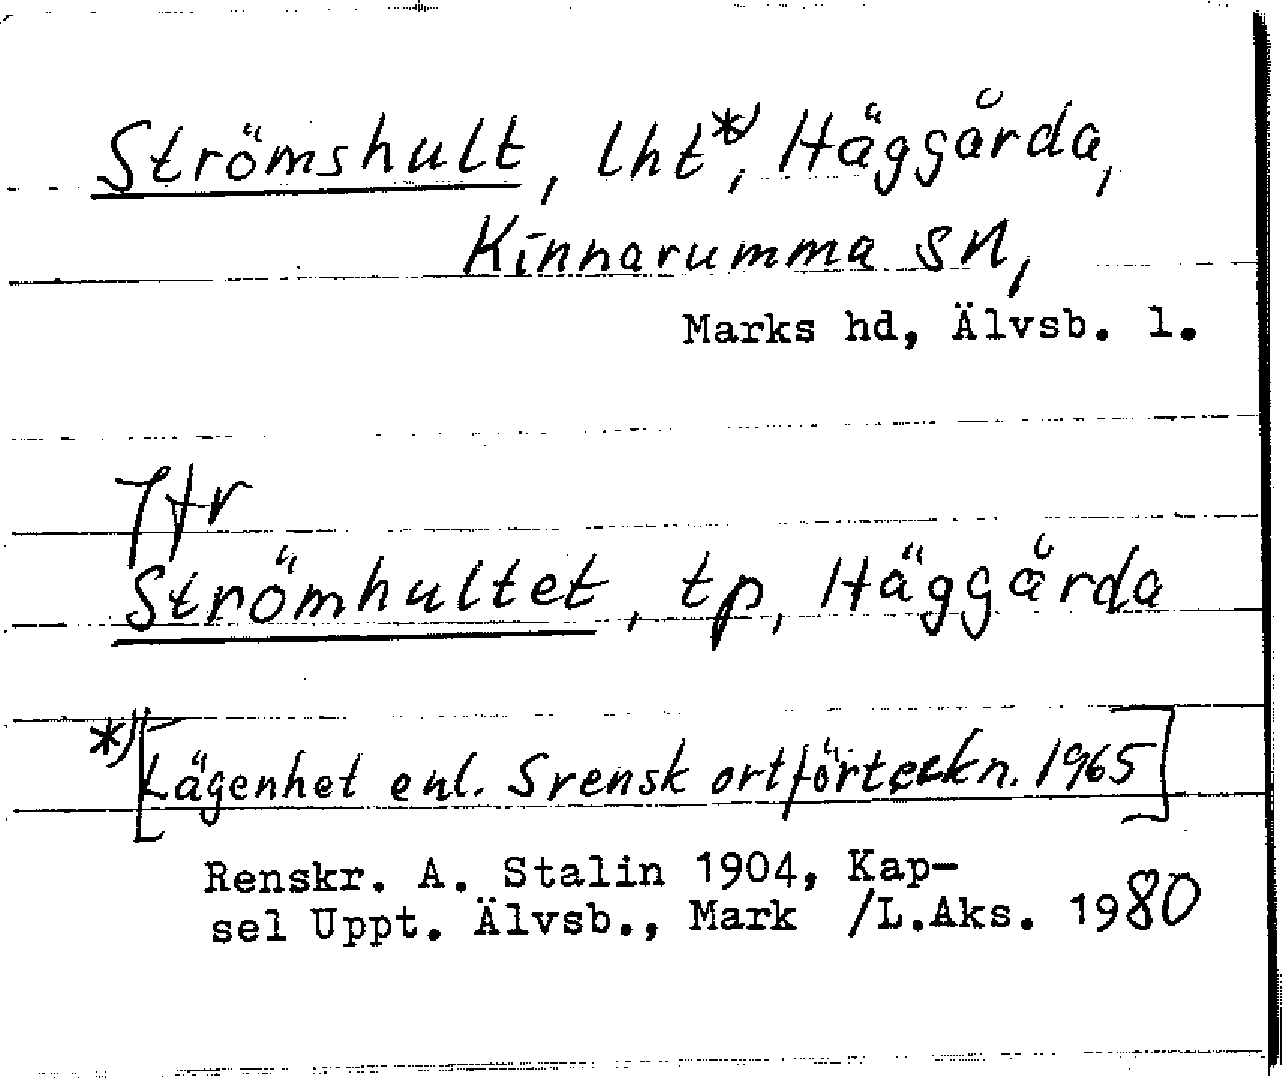 Strömshult, lht*), Häggårda,
Kinnarumma sn,
Marks hd, Älvsb. l.
Jfr
Strömhultet, tp, Häggårda
*) [Lägenhet enl. Svensk ortförteckn. 1965]
Renskr. A. Stalin 1904, Kap-
sel Uppt. Älvsb., Mark /L.Aks. 1980